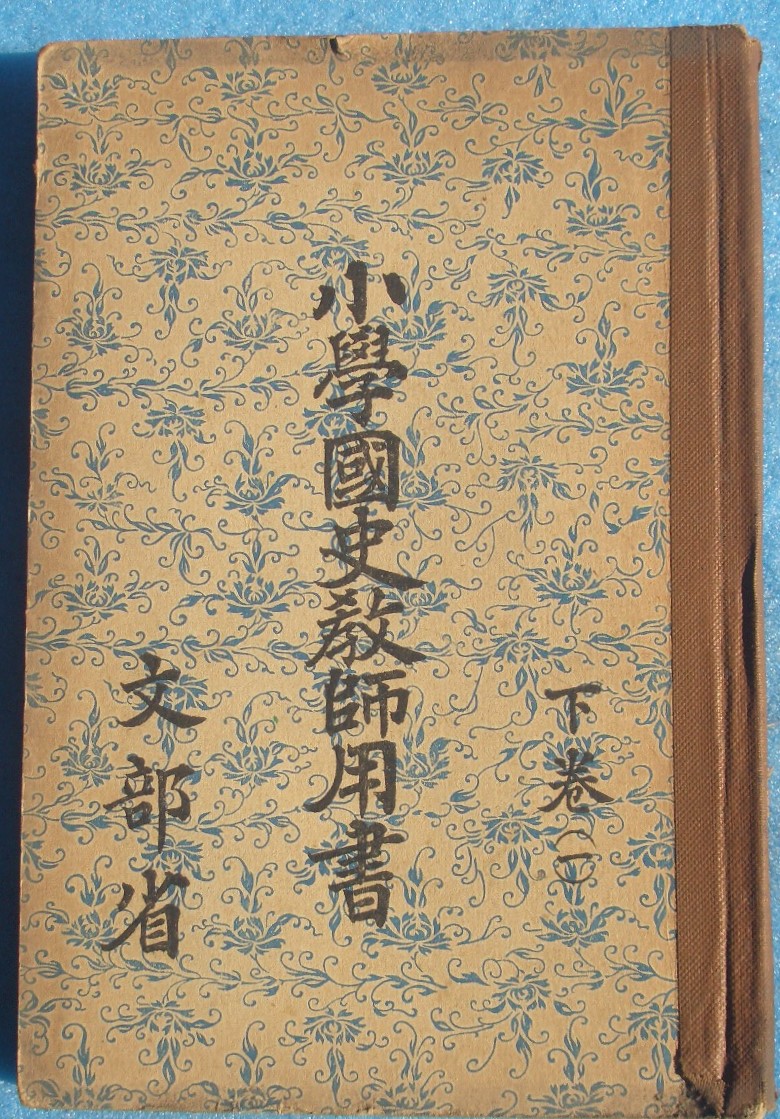 下巻(一)
小學國史教師用書
文部省